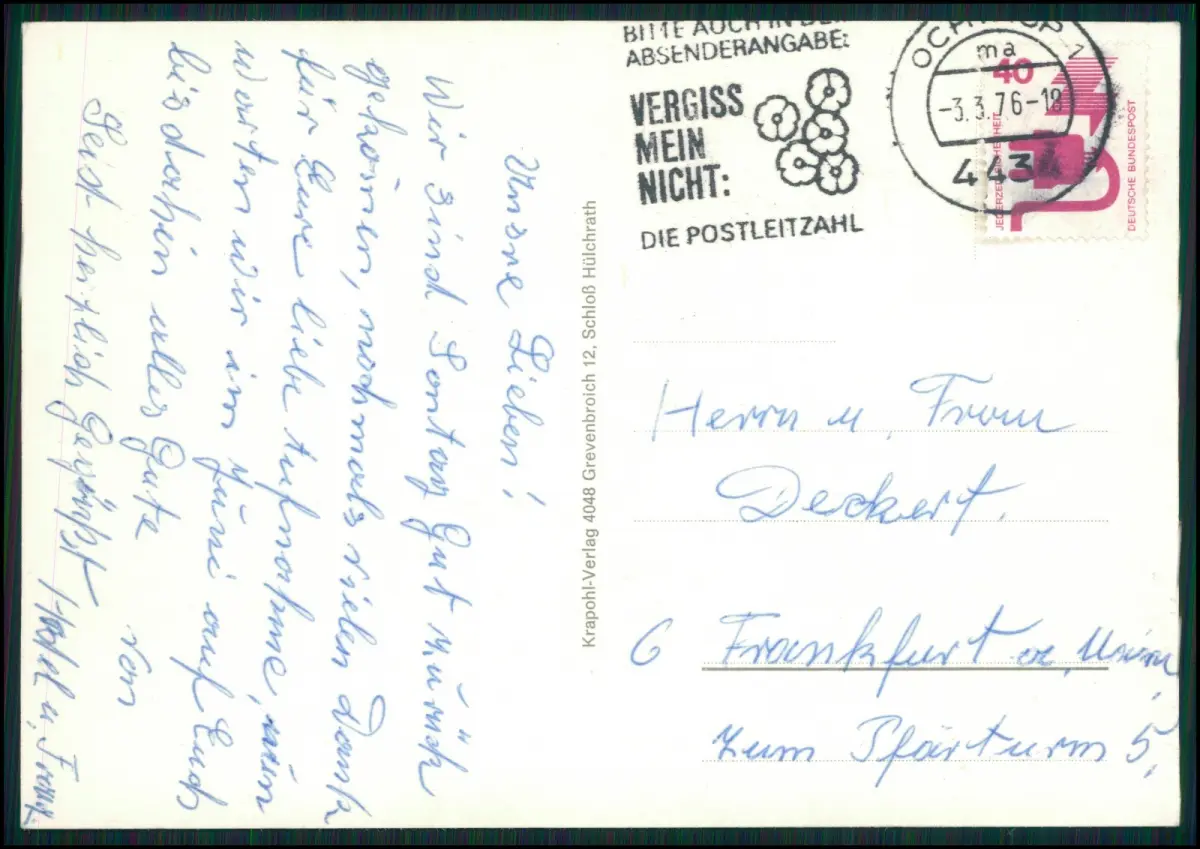 Unsre Lieben!
Wir sind Sontag Gut zurück
gekomen, nochmals vielen Dank
für Eure liebe Aufnahme, nun
warten wir im Juni auf Euch
bis dahin alles Gute
Seist herzlich Gegrüßt von
u. Franz.
Krapohl-Verlag 4048 Grevenbroich 12, Schloß Hülchrath
BITTE AUCH IN DER
ABSENDERANGABE:
VERGISS
MEIN
NICHT:
DIE POSTLEITZAHL
OCHTRUP 1
ma
-3.3.76-18
4434
40
JEDERZEIT SICHERHEIT
DEUTSCHE BUNDESPOST
Herrn u. Frau
Deckert.
6 Frankfurt a. Main,
zum Pfarturm 5,